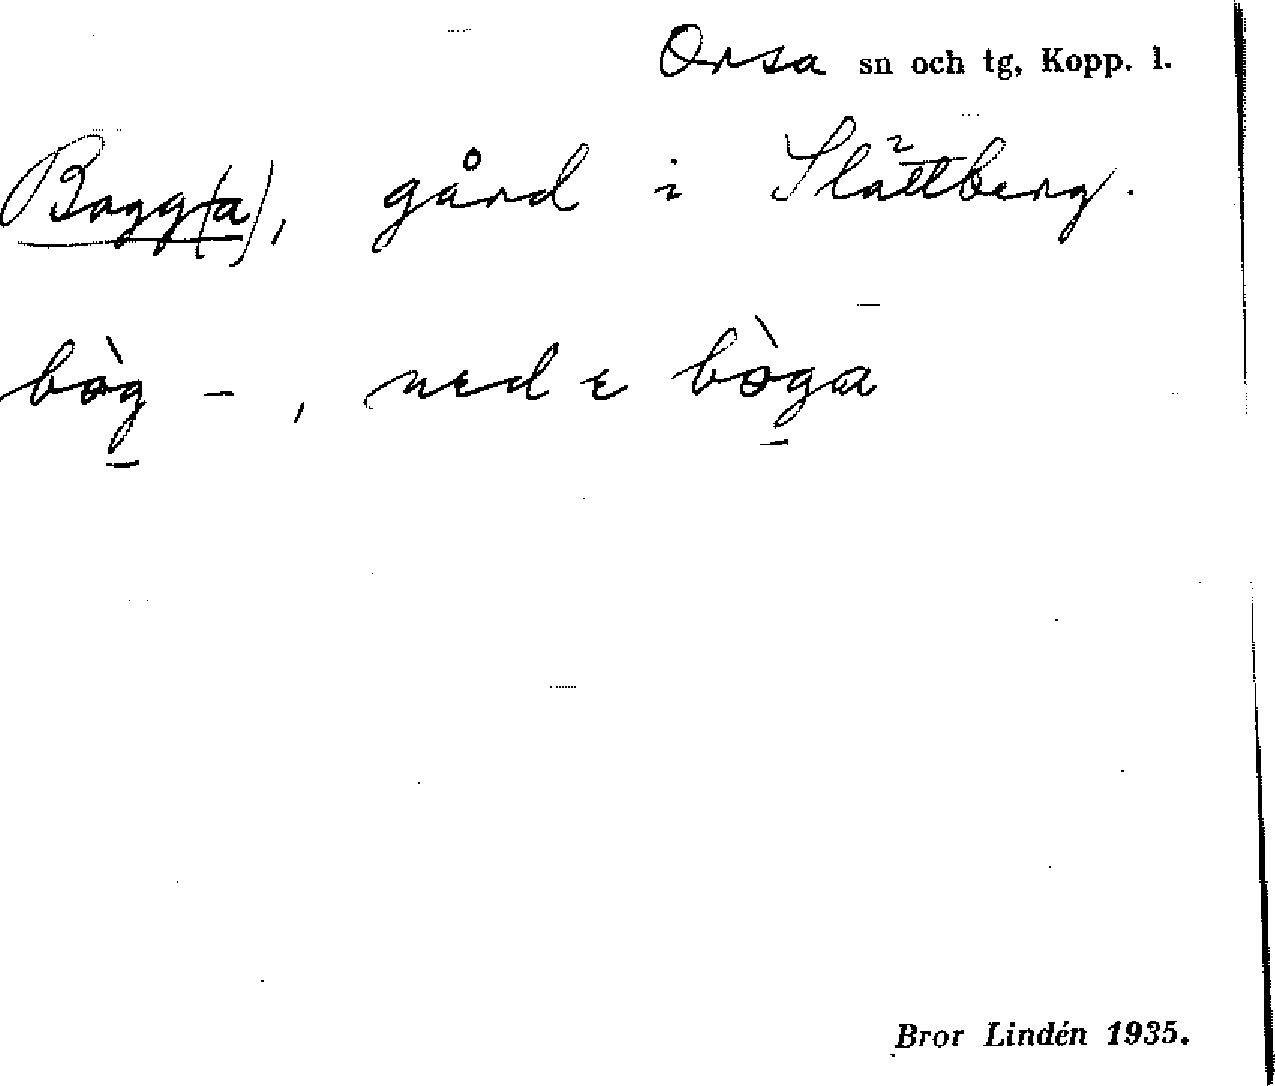 Orsa sn och tg, Kopp. l.
Bogg(a), gård i Slättberg.
bòg -, ned ɛ bòga
Bror Lindén 1935.